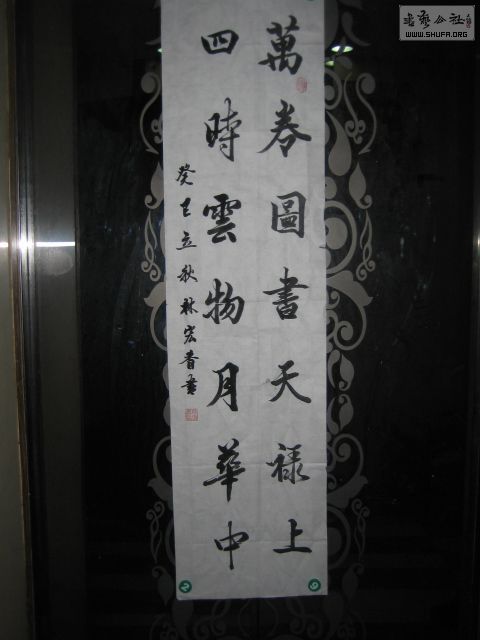 萬卷圖書天禄上
四時雲物月華中
癸巳立秋林宏香書
書藝公社
WWW.SHUFA.ORG